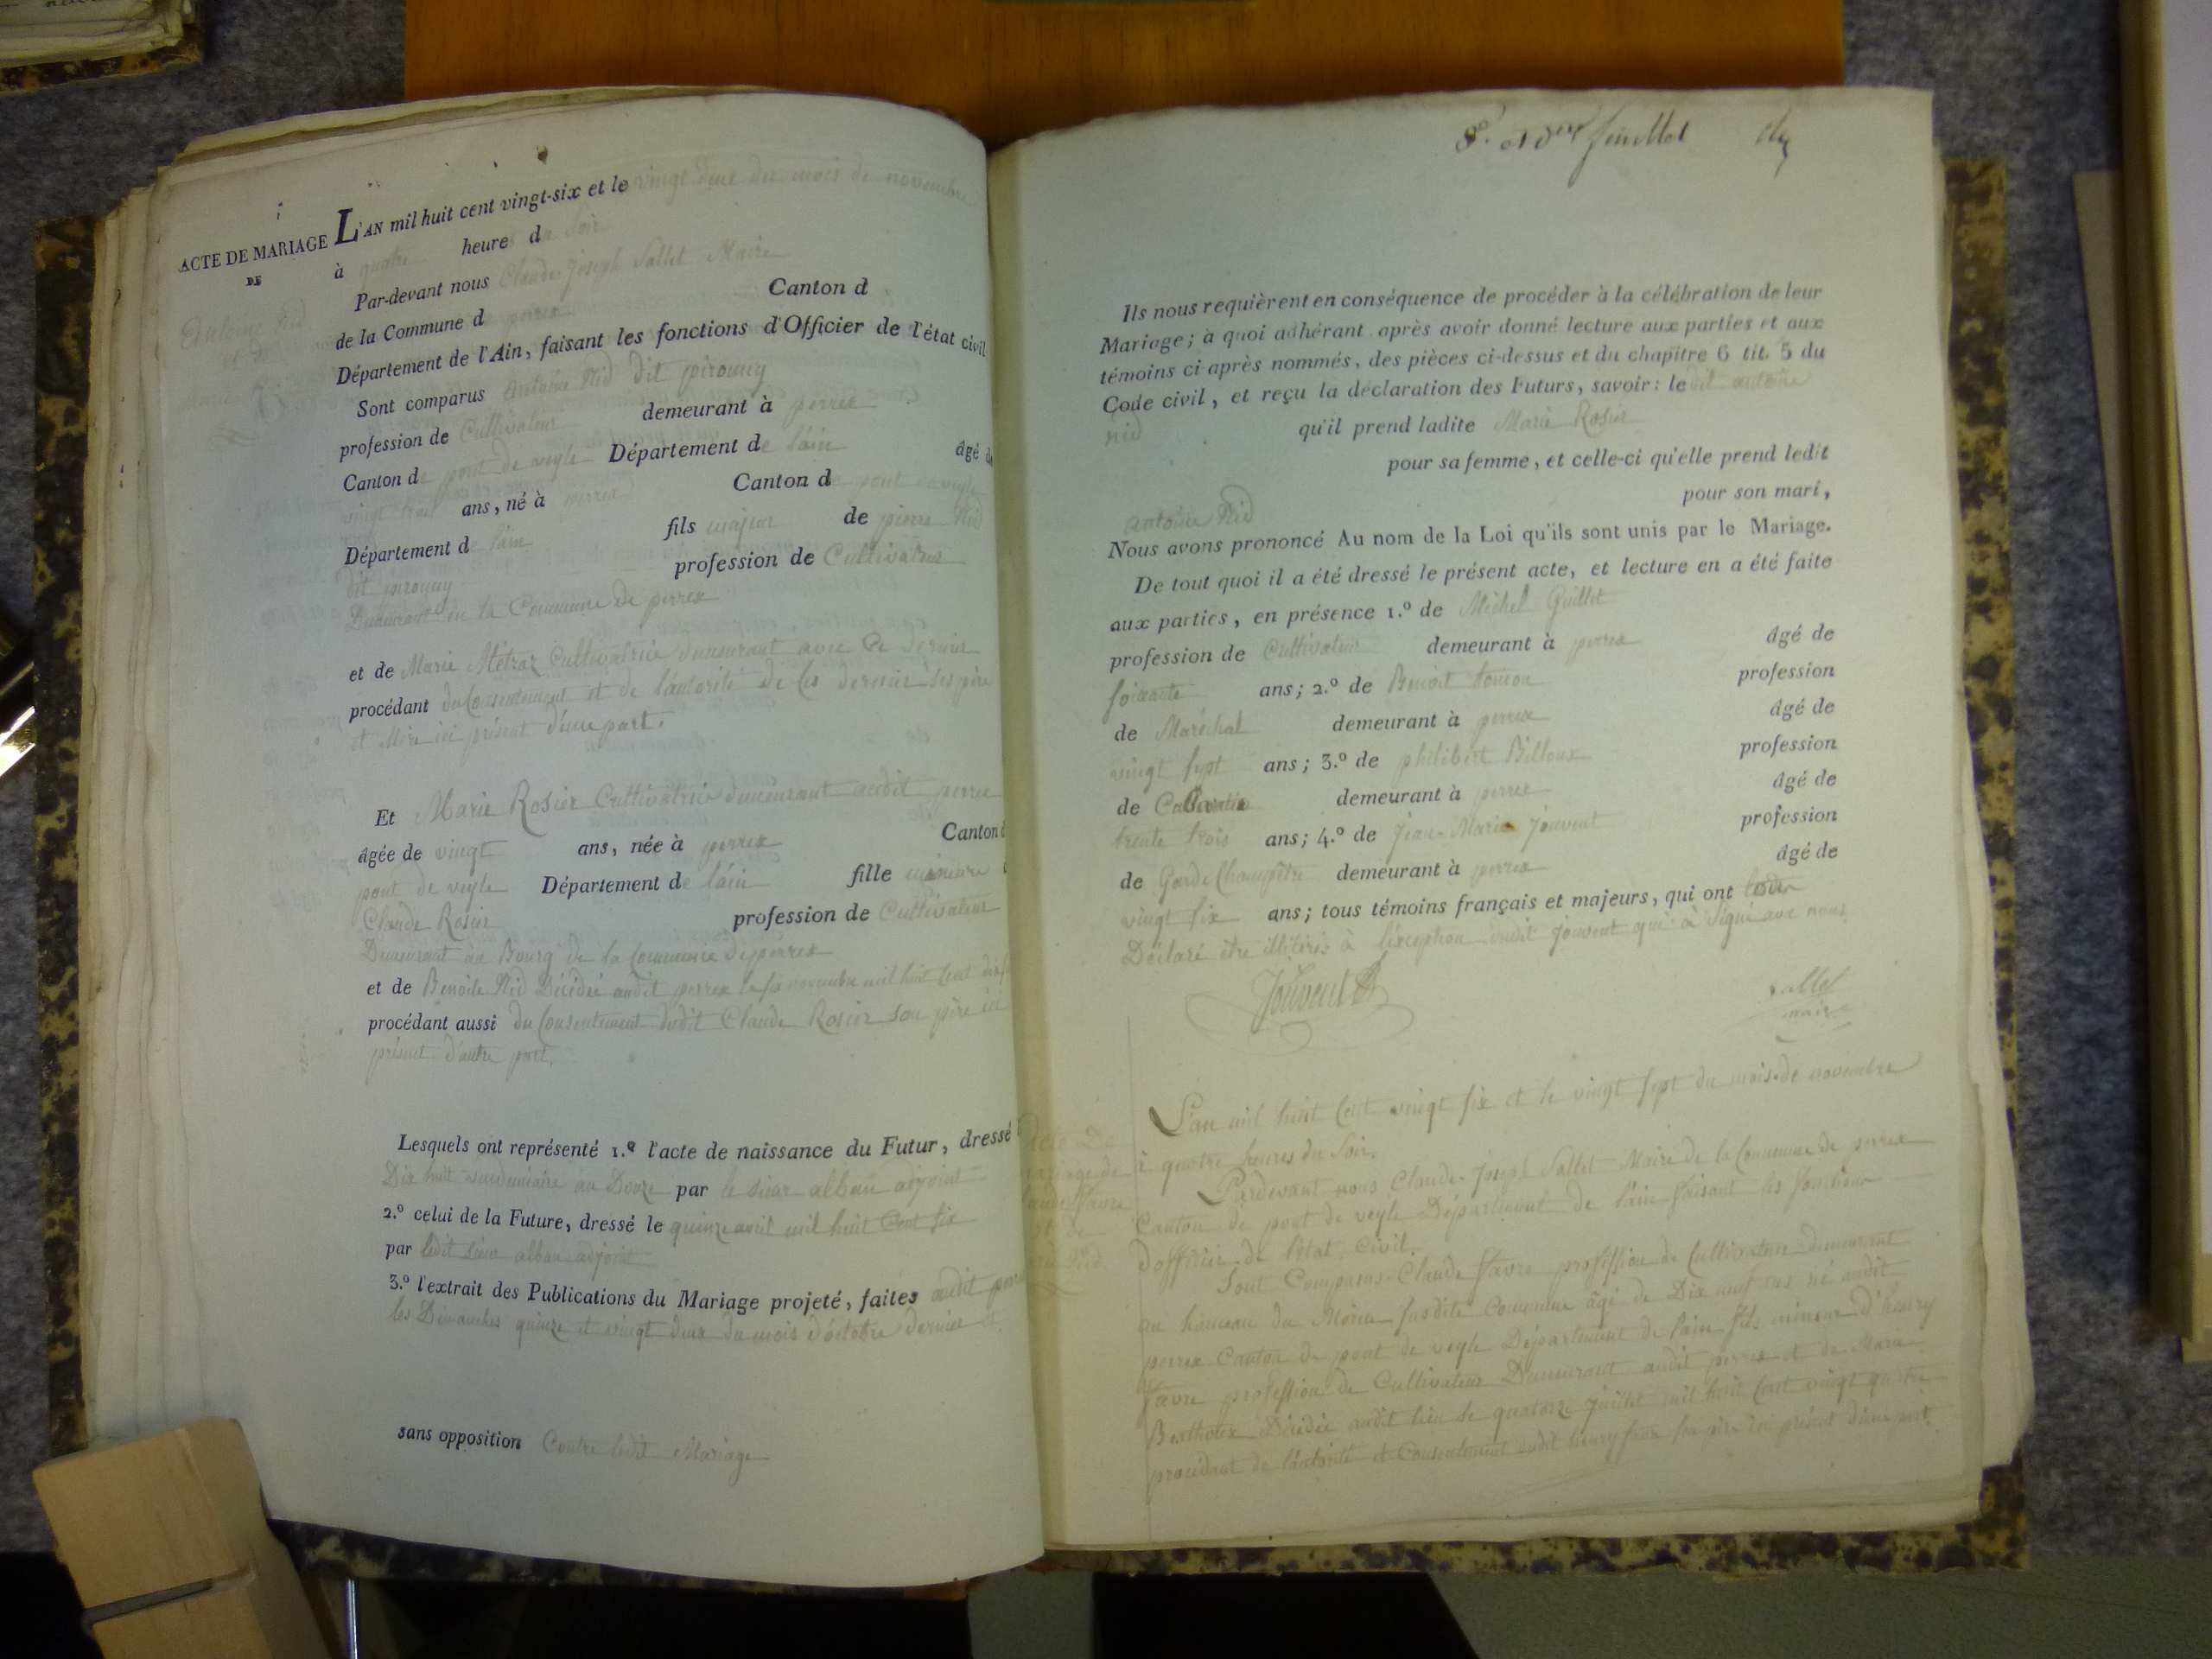 ACTE DE MARIAGE
DE
Antoine Nid
L'AN mil huit cent vingt-six et le vingt deux du mois de novembre
à quatre heures du soir
Par-devant nous Claude-Joseph Sallet Maire
de la Commune de perrex Canton d
Département de l'Ain, faisant les fonctions d'Officier de l'état civil
Sont comparus Antoine Nid dit pirouny
profession de Cultivateur demeurant à perrex
Canton de pont de veyle Département de l'ain âgé de
vingt trois ans, né à perrex Canton de pont de veyle
Département de l'ain fils majeur de pierre Nid
dit pirouny profession de Cultivateur
Demeurant en la Commune de perrex
et de Marie Métraz Cultivatrice demeurant avec ce dernier
procédant du Consentement et de l'autorité de ces derniers ses père
et Mère ici présent d'une part.
Et Marie Rosier Cultivatrice demeurant audit perrex
âgée de vingt ans, née à perrex Canton d
pont de veyle Département de l'ain fille mineure
Claude Rosier profession de Cultivateur
Demeurant au Bourg de la Commune de perrex
et de Benoite Nid Décédée audit perrex le six novembre mil huit cent
procédant aussi du Consentement dudit Claude Rosier son père ici
présent d'autre part.
Lesquels ont représenté 1.º l'acte de naissance du Futur, dressé
Dix huit vendemiaire an Douze par le sieur alban adjoint
2.º celui de la Future, dressé le quinze avril mil huit Cent six
par ledit sieur alban adjoint
3.º l'extrait des Publications du Mariage projeté, faites audit
les Dimanches quinze et vingt deux du mois d'octobre dernier
sans opposition Contre ledit Mariage
8.e et der feuillet
Ils nous requièrent en conséquence de procéder à la célébration de leur
Mariage; à quoi adhérant après avoir donné lecture aux parties et aux
témoins ci après nommés, des pièces ci-dessus et du chapitre 6 tit. 5 du
Code civil, et reçu la déclaration des Futurs, savoir: le dit antoine
nid qu'il prend ladite Marie Rosier
pour sa femme, et celle-ci qu'elle prend ledit
antoine Nid pour son mari,
Nous avons prononcé Au nom de la Loi qu'ils sont unis par le Mariage.
De tout quoi il a été dressé le présent acte, et lecture en a été faite
aux parties, en présence 1.º de Michel Guillet
profession de Cultivateur demeurant à perrex âgé de
soixante ans; 2.º de Benoit profession
de Maréchal demeurant à perrex âgé de
vingt sept ans; 3.º de philibert Billoux profession
de demeurant à perrex âgé de
trente trois ans; 4.º de Jean-Marie Jouvent profession
de Garde Champêtre demeurant à perrex âgé de
vingt six ans; tous témoins français et majeurs, qui ont
Déclaré être illitérés à l'exception dudit Jouvent qui à Signé avec nous
Jouvent
Sallet
maire
L'an mil huit Cent vingt six et le vingt sept du mois de novembre
à quatre heures du Soir.
Pardevant nous Claude-Joseph Sallet Maire de la Commune de perrex
Canton de pont de veyle Département de l'ain faisant les fonctions
D'officier de l'état civil.
Sont Comparus Claude Favre profession de Cultivateur demeurant
au hameau du susdite Commune âgé de Dix neuf ans né audit
perrex Canton de pont de veyle Département de l'ain fils mineur d'henry
Favre profession de Cultivateur Demeurant audit perrex et de Marie
Décédée audit lieu le quatorze Juillet mil huit Cent vingt quatre
procédant de l'autorité et Consentement dudit henry favre son père ici présent d'une part.